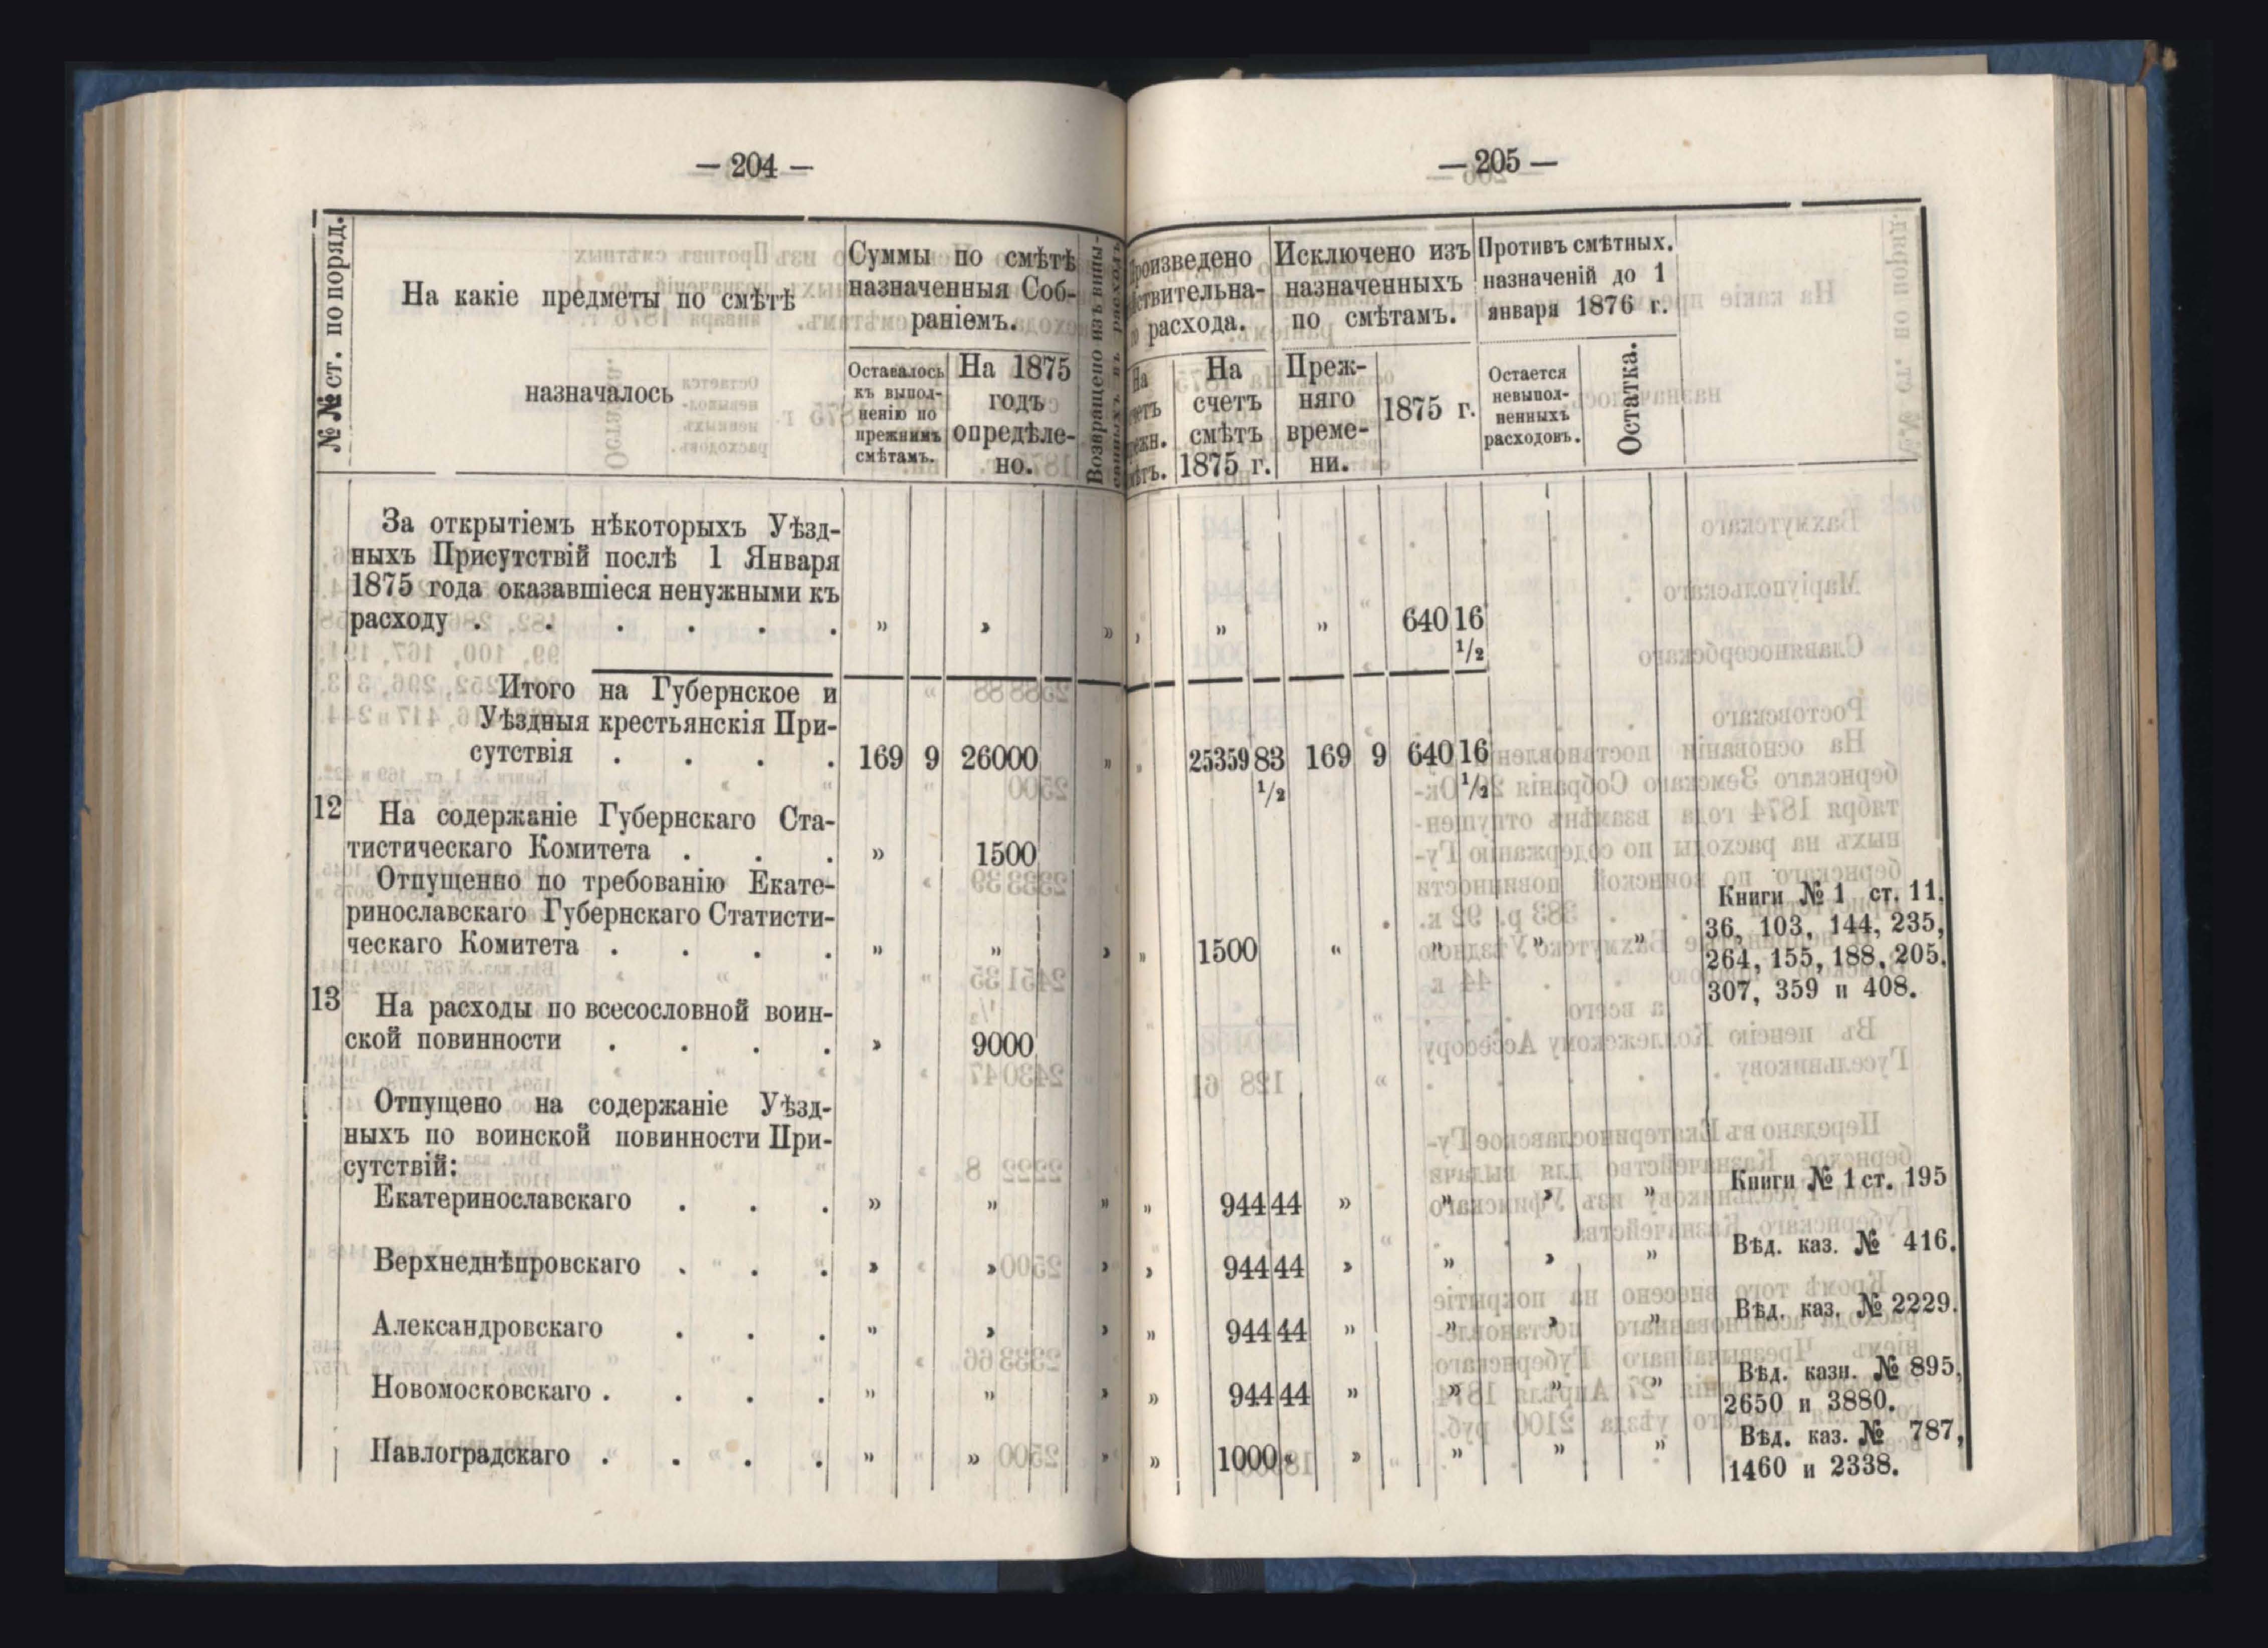 — 204 —
№№ ст. по поряд.
На какіе предметы по смѣтѣ
назначалось
Суммы по смѣтѣ
назначенныя Соб-
раніемъ.
Оставалось
къ выпол-
ненію по
прежнимъ
смѣтамъ.
На 1875
годъ
опредѣле-
но.
Возвращено изъ выпи-
санныхъ въ расходъ
За открытіемъ нѣкоторыхъ Уѣзд-
ныхъ Присутствій послѣ 1 Января
1875 года оказавшіеся ненужными къ
расходу . . . . . . „ „ „
Итого на Губернское и
Уѣздныя крестьянскія При-
сутствія . . . . 169 9 26000 „
12 На содержаніе Губернскаго Ста-
тистическаго Комитета . . . „ 1500
Отпущенно по требованію Екате-
ринославскаго Губернскаго Статисти-
ческаго Комитета . . . . „ „ „
13 На расходы по всесословной воин-
ской повинности . . . . „ 9000
Отпущено на содержаніе Уѣзд-
ныхъ по воинской повинности При-
сутствій:
Екатеринославскаго . . . „ „ „
Верхнеднѣпровскаго . . . „ „ „
Александровскаго . . . „ „ „
Новомосковскаго . . . . „ „ „
Павлоградскаго . . . . „ „ „
— 205 —
Произведено
расхода.
Исключено изъ
назначенныхъ
по смѣтамъ.
Противъ смѣтныхъ.
назначеній до 1
января 1876 г.
На
На
счетъ
смѣтъ
1875 г.
Преж-
няго
време-
ни.
1875 г.
Остается
невыпол-
ненныхъ
расходовъ.
Остатка.
„ „ „ 640 16
1/2
„ 25359 83 169 9 640 16
1/2 1/2
Книги № 1 ст. 11,
36, 103, 144, 235,
„ 1500 „ „ „ „
264, 155, 188, 205,
307, 359 и 408.
Книги № 1 ст. 195
„ 944 44 „ „ „ „
Вѣд. каз. № 416.
„ 944 44 „ „ „ „
Вѣд. каз. № 2229.
„ 944 44 „ „ „ „
Вѣд. казн. № 895,
„ 944 44 „ „ „ „
2650 и 3880.
Вѣд. каз. № 787,
„ 1000 „ „ „ „ „
1460 и 2338.